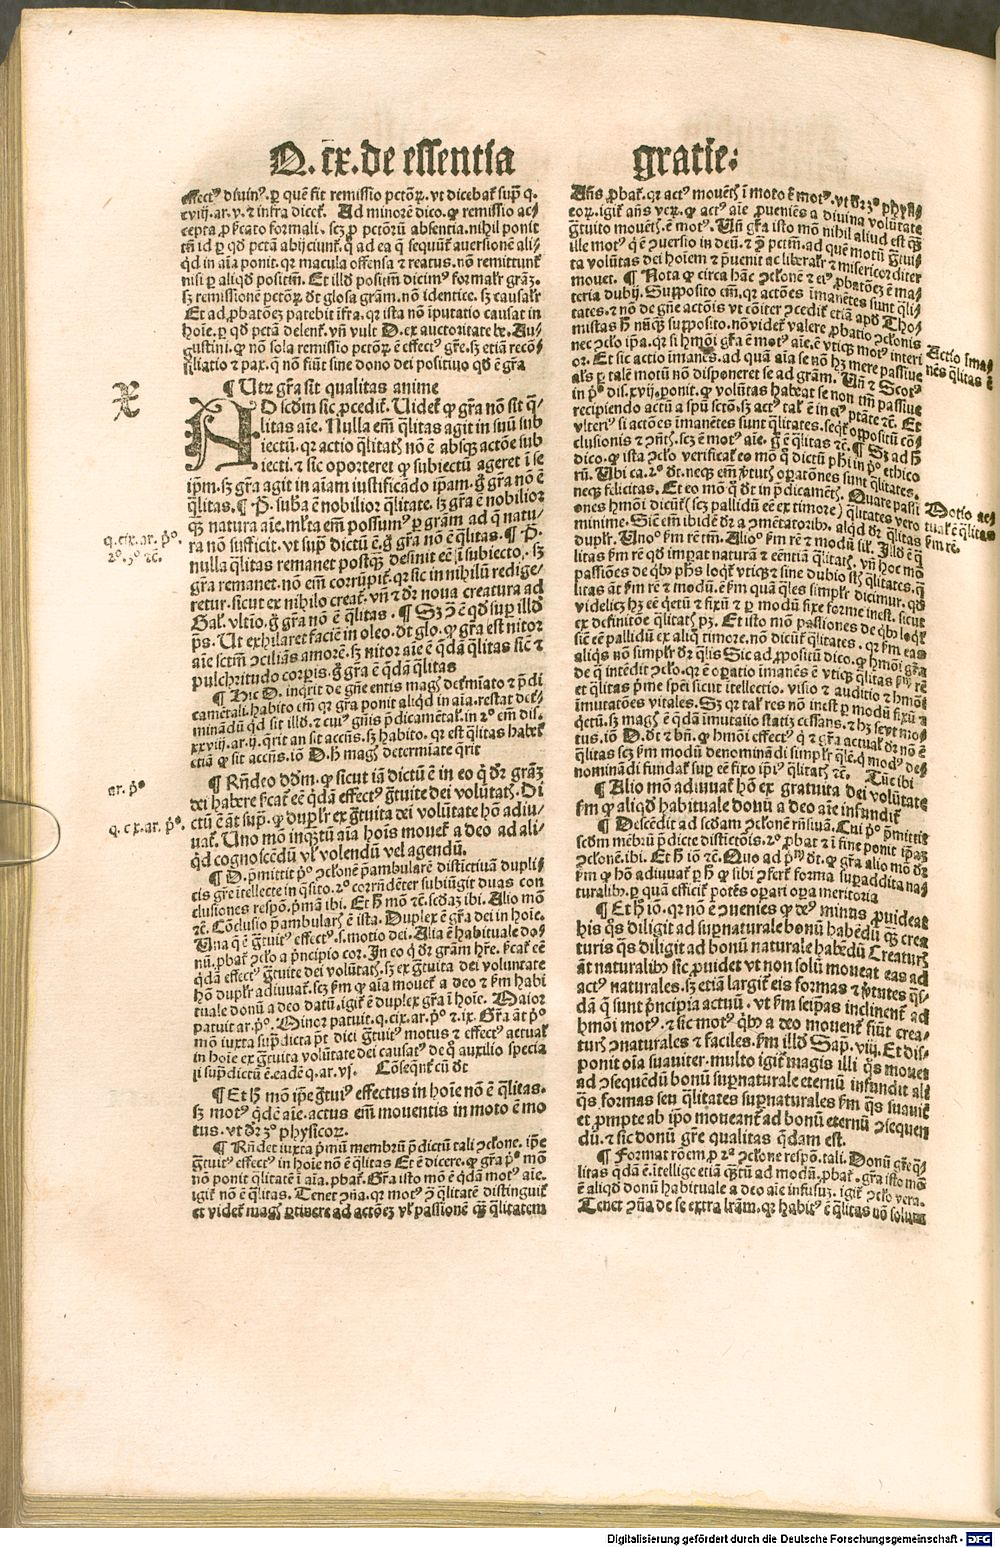 Q. cx. de essentia gratie:
effectꝰ diuinꝰ. ꝑ quē fit remissio pctoꝝ. vt dicebat̄ supͣ q.
xviij. ar. v. ⁊ infra dicet̄. Ad minorē dico. ꝙ remissio ac⸗
cepta ꝓ ſcato formali. scꝫ ꝓ pctoꝝ absentia. nihil ponit
tm̄ id ꝑ qd̄ pctā abijciunt̄. q̄ ad ea q̄ sequūt̄ auersionē ali⸗
qd̄ in aīa ponit. qꝛ macula offensa ⁊ reatus. nō remittunt̄
nisi ꝑ aliqd̄ positm̄. Et illd̄ positm̄ dicimꝰ formalr̄ grāꝫ.
sꝫ remissionē pctoꝝ dt̄ glosa grām. nō identice. sꝫ causalr̄
Et ad ꝓbatōeꝫ patebit īfra. qꝛ ista nō īputatio causat in
hoīe. ꝑ qd̄ pctā delent̄. vn̄ vult D. ex auctoritate be. Au⸗
gustini. ꝙ nō sola remissio pctoꝝ ē effectꝰ gr̄e. sꝫ etiā recō⸗
ciliatio ⁊ pax. q̄ nō fiūt sine dono dei positiuo qd̄ ē gr̄a
¶ Utꝝ gr̄a sit qualitas anime
AD scdm̄ sic ꝓcedit̄. Uidet̄ ꝙ gr̄a nō sit q̄⸗
litas aīe. Nulla em̄ q̄litas agit in suū sub
iectū. qꝛ actio q̄litatꝭ nō ē absqꝫ actōe sub
iecti. ⁊ sic oporteret ꝙ subiectū ageret ī se
ip̄m. sꝫ gr̄a agit in aīam iustificādo ip̄am. g̊ gr̄a nō ē
q̄litas. ¶ P. sub̄a ē nobilior q̄litate. sꝫ gr̄a ē nobilior
qꝫ natura aīe. ml̄ta em̄ possumꝰ ꝑ grām ad q̄ natu⸗
ra nō sufficit. vt supͣ dictū ē. g̊ gr̄a nō ē q̄litas. ¶ P.
nulla q̄litas remanet postqꝫ desinit eē ī subiecto. sꝫ
gr̄a remanet. nō em̄ corrūpit̄. qꝛ sic in nihilū redige⸗
retur. sicut ex nihilo creat̄. vn̄ ⁊ dr̄ noua creatura ad
Gal. vltio. g̊ gr̄a nō ē q̄litas. ¶ Sꝫ ꝯͣ ē qd̄ suꝑ illd̄
pͣs. Ut exhilaret faciē in oleo. dt̄ glo. ꝙ gr̄a est nitor
aīe sctm̄ ꝯciliās amorē. sꝫ nitor aīe ē q̄dā q̄litas sic̄ ⁊
pulchritudo corpis. g̊ gr̄a ē q̄dā q̄litas
¶ Hic D. inqrit de gn̄e entis magꝭ detmīato ⁊ p̄di
camētali. habito em̄ qꝛ gr̄a ponit aliqd̄ in aīa. restat det̄⸗
minādū qd̄ sit illd̄. ⁊ cuiꝰ gn̄is p̄dicamētal. in 2º em̄ dis.
xxviij. ar. ij. q̄rit an sit accn̄s. sꝫ habito. qꝛ est q̄litas habet̄
etiā ꝙ sit accn̄s. iō D. h̄ magꝭ determiate q̄rit
¶ Rn̄deo dd̄m. ꝙ sicut iā dictū ē in eo q̊ dr̄ grāꝫ
dei habere ſcat̄ eē q̄dā effectꝰ g̊tuite dei volūtatꝭ. Di
ctū ē āt supͣ. ꝙ duplr̄ ex g̊tuita dei volūtate hō adiu⸗
uat̄. Uno mō inqꝫtū aīa hoīs mouet̄ a deo ad ali⸗
qd̄ cognoscēdū vl̓ volendū vel agendū.
¶ D. p̄mittit pº ꝯclonē p̄ambularē distinctiuā dupli⸗
cis gr̄e ītellecte in q̄sito. 2º corrn̄dēter subiūgit duas con
clusiones respō. p̄mā ibi. Et h̄ mō ⁊c̄. scdaꝫ ibi. Alio mō
⁊c̄. Cōclusio p̄ambularꝭ ē ista. Duplex ē gr̄a dei in hoīe.
Una q̄ ē g̊tuitꝰ effectꝰ. s. motio dei. Alia ē habituale do⸗
nū. ꝓbat̄ ꝯclo a p̄ncipio cor. In eo q̊ dr̄ grām hr̄e. ſcat̄ eē
q̄dā effectꝰ g̊tuite dei volūtatꝭ. sꝫ ex g̊tuita dei voluntate
hō duplr̄ adiuuat̄. scꝫ ẜm ꝙ aīa mouet̄ a deo ⁊ ẜm habi
tuale donū a deo datū. igit̄ ē duplex gr̄a ī hoīe. Maior
patuit ar. pº. Minor patuit. q. cix. ar. pº ⁊. ix. Gr̄a āt pº
mō iuxta supͣdicta pt̄ dici g̊tuitꝰ motus ⁊ effectꝰ actual̄
in hoīe ex g̊tuita volūtate dei causatꝰ de q̊ auxilio specia
li supͣ dictū ē. eadē q. ar. vj. Cōseqnt̄ cū dt̄
¶ Et h̄ mō ip̄e g̊tuitꝰ effectus in hoīe nō ē q̄litas.
sꝫ motꝰ q̄dē aīe. actus em̄ mouentis in moto ē mo
tus. vt dr̄ 3º physicoꝝ.
¶ Rn̄det iuxta p̄mū membrū p̄dictū tali ꝯclone. ip̄e
g̊tuitꝰ effectꝰ in hoīe nō ē q̄litas Et ē dicere. ꝙ gr̄a pº mō
nō ponit q̄litatē ī aīa. ꝓbat̄. Gr̄a isto mō ē q̄dā motꝰ aīe.
igit̄ nō ē q̄litas. Tenet ꝯn̄a. qꝛ motꝰ ꝯͣ q̄litatē distinguit̄
et videt̄ magꝭ ꝑtinere ad actōeꝫ vl̓ passionē qꝫ q̄litatem
X
q. cix. ar. pº.
2º. 5º ⁊c̄.
ar. pº
q. cx. ar. pº.
Ān̄s ꝓbat̄. qꝛ actꝰ mouētꝭ ī moto ē motꝰ. vt dr̄ 3º physi⸗
coꝝ. igit̄ an̄s veꝝ. ꝙ actꝰ aīe ꝓueniēs a diuina volūtate
g̊tuito mouētꝭ. ē motꝰ. Un̄ gr̄a isto mō nihil aliud est qꝫ
ille motꝰ q̊ ē ꝯuersio in deū. ⁊ ꝯͣ pctm̄. ad quē motū g̊tui⸗
ta volūtas dei hoīem ⁊ p̄uenit ac liberalr̄ ⁊ misericorditer
mouet. ¶ Nota ꝙ circa hāc ꝯclonē ⁊ eiꝰ ꝓbatōeꝫ ē ma⸗
teria dubij. Supposito em̄. qꝛ actōes īmanētes sunt q̄li⸗
tates. ⁊ nō de gn̄e actōis vt cōiter ꝯcedit̄ etiā apd̄ Tho⸗
mistas h̄ nūqꝫ supposito. nō videt̄ valere ꝓbatio ꝯclonis
nec ꝯclo ip̄a. qꝛ si hmōi gr̄a ē motꝰ aīe. ē vtiqꝫ motꝰ interi
or. Et sic actio imanēs. ad quā aīa se nō hꝫ mere passiue
als ꝑ talē motū nō disponeret se ad grām. Un̄ ⁊ Scotꝰ
in pº dis. xvij. ponit. ꝙ volūtas habeat se non tm̄ passiue
recipiendo actū a spū sctō. sꝫ actꝰ tal̄ ē in eiꝰ ptāte ⁊c̄. Et
vlteriꝰ si actōes īmanētes sunt q̄litates. seqt̄ oppositū cō⸗
clusionis ⁊ ꝯn̄tꝭ. scꝫ ē motꝰ aīe. g̊ ē q̄litas ⁊c̄. ¶ Sꝫ ad h̄
dico. ꝙ ista ꝯclo verificat̄ eo mō q̊ dictū phi in pº ethico
rū. Ubi ca. 2º dt̄. neqꝫ em̄ v̓tutꝭ oꝑatōnes sunt q̄litates.
neqꝫ felicitas. Et eo mō q̊ dt̄ in p̄dicamētꝭ. Quare passi
ones hmōi dicūt̄ (scꝫ pallidū eē ex timore) q̄litates vero
minime. Sic̄ em̄ ibidē dr̄ a ꝯmētatorib̓. aliqd̄ dr̄ q̄litas
duplr̄. Unoº ẜm rē tm̄. Alioº ẜm rē ⁊ modū sil̄. Illd̄ ē q̄
litas ẜm rē qd̄ imꝑat naturā ⁊ eēntiā q̄litatꝭ. vn̄ hoc mō
passiōes de qb̓ phs loqt̄ vtiqꝫ ⁊ sine dubio sūt q̄litates. q̄
litas āt ẜm rē ⁊ modū. ē ẜm quā q̄les simplr̄ dicimur. qd̄
videlicꝫ hꝫ eē q̊etū ⁊ fixū ⁊ ꝑ modū fixe forme inest. sicut
ex definitōe q̄litatꝭ pꝫ. Et isto mō passiones de qb̓ loqt̄
sic̄ eē pallidū ex aliq̊ timore. nō dicūt̄ q̄litates. qꝛ ẜm eas
aliqs nō simplr̄ dr̄ q̄lis Sic ad ꝓpositū dico. ꝙ hmōi gr̄a
de q̄ intēdit ꝯclo. qꝛ ē oꝑatio imanēs ē vtiqꝫ q̄litas ẜm rē
et q̄litas p̄me sp̄ei sicut ītellectio. visio ⁊ auditio ⁊ hmōi
īmutatōes vitales. Sꝫ qꝛ tal̄ res nō inest ꝑ modū fixū ⁊
q̊etū. sꝫ magꝭ ē q̄dā īmutatio statiꝫ cessans. ⁊ hꝫ seꝑ mo⸗
tus. iō D. dt̄ ⁊ bn̄. ꝙ hmōi effectꝰ q̊ ⁊ gr̄a actual̄ dr̄ nō ē
q̄litas scꝫ ẜm modū denominādi simplr̄ q̄le. q̊ modꝰ de⸗
nominādi fundat̄ suꝑ eē fixo ip̄iꝰ q̄litatꝭ ⁊c̄. Tūc ibi
¶ Alio mō adiuuat̄ hō ex gratuita dei volūtate
ẜm ꝙ aliqd̄ habituale donū a deo aīe infundit̄
¶ Descēdit ad scdam ꝯclonē rn̄siuā. Cui pº p̄mittit
scdm̄ mēbrū p̄dicte distīctōis. 2º ꝓbat ⁊ ī fine ponit ip̄aꝫ
ꝯclonē. ibi. Et h̄ iō ⁊c̄. Quo ad pᵐ dt̄. ꝙ gr̄a alio mō dr̄
ẜm ꝙ hō adiuuat̄ ꝑ h̄ ꝙ sibi ꝯfert̄ forma suꝑaddita na⸗
turalib̓. ꝑ quā efficit̄ potēs oꝑari oꝑa meritoria
¶ Et h̄ iō. qꝛ nō ē ꝯueniēs ꝙ deꝰ minus ꝓuideat
his qͦs diligit ad supnaturale bonū habēdū. qꝫ crea
turis qͣs diligit ad bonū naturale habēdū Creaturꝭ
āt naturalib̓ sic ꝓuidet vt non solū moueat eas ad
actꝰ naturales. sꝫ etiā largit̄ eis formas ⁊ v̓tutes qͣs⸗
dā q̄ sunt p̄ncipia actuū. vt ẜm seip̄as inclinent̄ ad
hmōi motꝰ. ⁊ sic motꝰ qb̓ a deo mouent̄ fiūt crea⸗
turꝭ ꝯnaturales ⁊ faciles. ẜm illd̄ Sap. viij. Et dis⸗
ponit oīa suauiter. multo igit̄ magis illi qͦs mouet
ad ꝯsequēdū bonū supnaturale eternū infundit ali
qͣs formas seu q̄litates supnaturales ẜm qͣs suauit̄
et ꝓmpte ab ip̄o moueant̄ ad bonū eternū ꝯsequen
dū. ⁊ sic donū gr̄e qualitas q̄dam est.
¶ Format rōem. ꝓ 2ª ꝯclone respō. tali. Donū gr̄e q̄⸗
litas q̄dā ē. ītellige etiā qꝫtū ad modū. ꝓbat̄. gr̄a isto mō
ē aliqd̄ donū habituale a deo aīe infusuꝫ. igit̄ ꝯclo vera.
Tenet ꝯn̄a de se extra lr̄am. qꝛ habitꝰ ē q̄litas nō solum
Actio īma⸗
nēs q̄litas ē
Motio ac⸗
tual̄ ē q̄litas
ẜm rē.
Digitalisierung gefördert durch die Deutsche Forschungsgemeinschaft - DFG